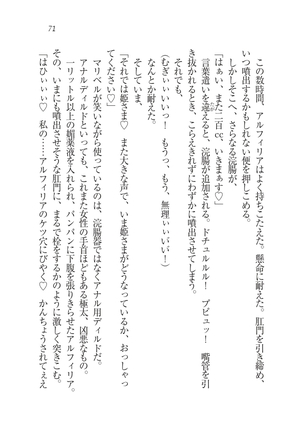 71
この数時間、アルフィリアはよく持ちこたえた。懸命に耐えた。肛門を引き締め、
いつ噴出するかもしれない便を押しこめる。
しかしそこへ、さらなる浣腸が、
「はぁい、また二百cc、いきまぁす♡」
言葉遣いを違えると、浣腸が追加される。ドチュルルル！　ブビュッ！　嘴管を引
き抜かれるとき、こらえきれずにわずかに噴出させてしまう。
それでも、
（むぎぃいいっ！　もうっ、もう、無理ぃいいい！）
なんとか耐えた。
そして、
「それでは姫さま♡　また大きな声で、いま姫さまがどうなっているか、おっしゃっ
てください♡」
マリベルが笑いながら持っているのは、浣腸器ではなくアナル用ディルドだ。
アナルディルドといっても、これまた女性の手首ほどもある極太、凶悪なもの。
一リットル以上の媚薬液を入れられ、パンパンに下腹を張りきらせたアルフィリア。
その、いまにも噴出させそうな肛門に、まるで栓をするかのように激しく突きこむ。
「はひぃいぃ♡　私の……アルフィリアのケツ穴にびやく♡　かんちょうされてぇえ